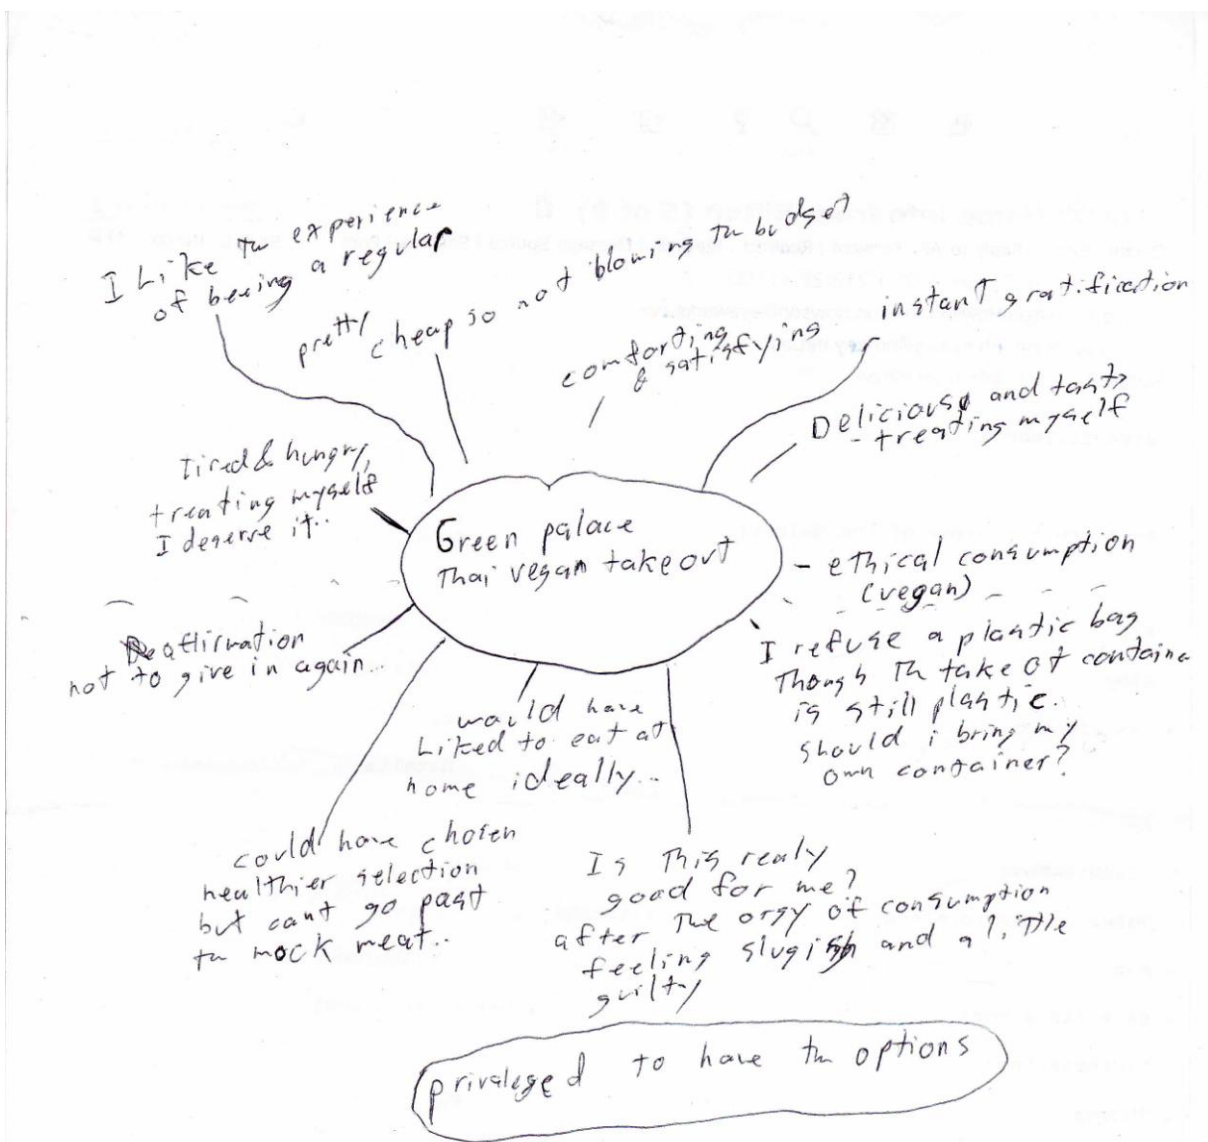 I Like the experience
of being a regular
pretty cheap so not blowing the budget
comforting
& satisfying
instant gratification
Delicious and tasty
- treating myself
Tired & hungry,
treating myself
I deserve it..
Green palace
Thai vegan takeout
- ethical consumption
(vegan)
I refuse a plastic bag
Though Th take ot containe
is still plastic.
should i bring my
own container?
Reaffirmation
not to give in again...
would have
Liked to eat at
home ideally...
could have chosen
healthier selection
but cant go past
the mock meat..
Is This realy
good for me?
after The orgy of consumption
feeling slugish and a little
guilty
privaleged to have the options